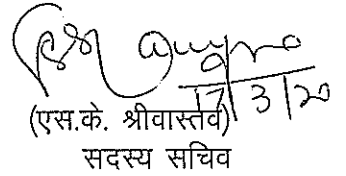 17/3/20
(एस.के. श्रीवास्तव)
सदस्य सचिव